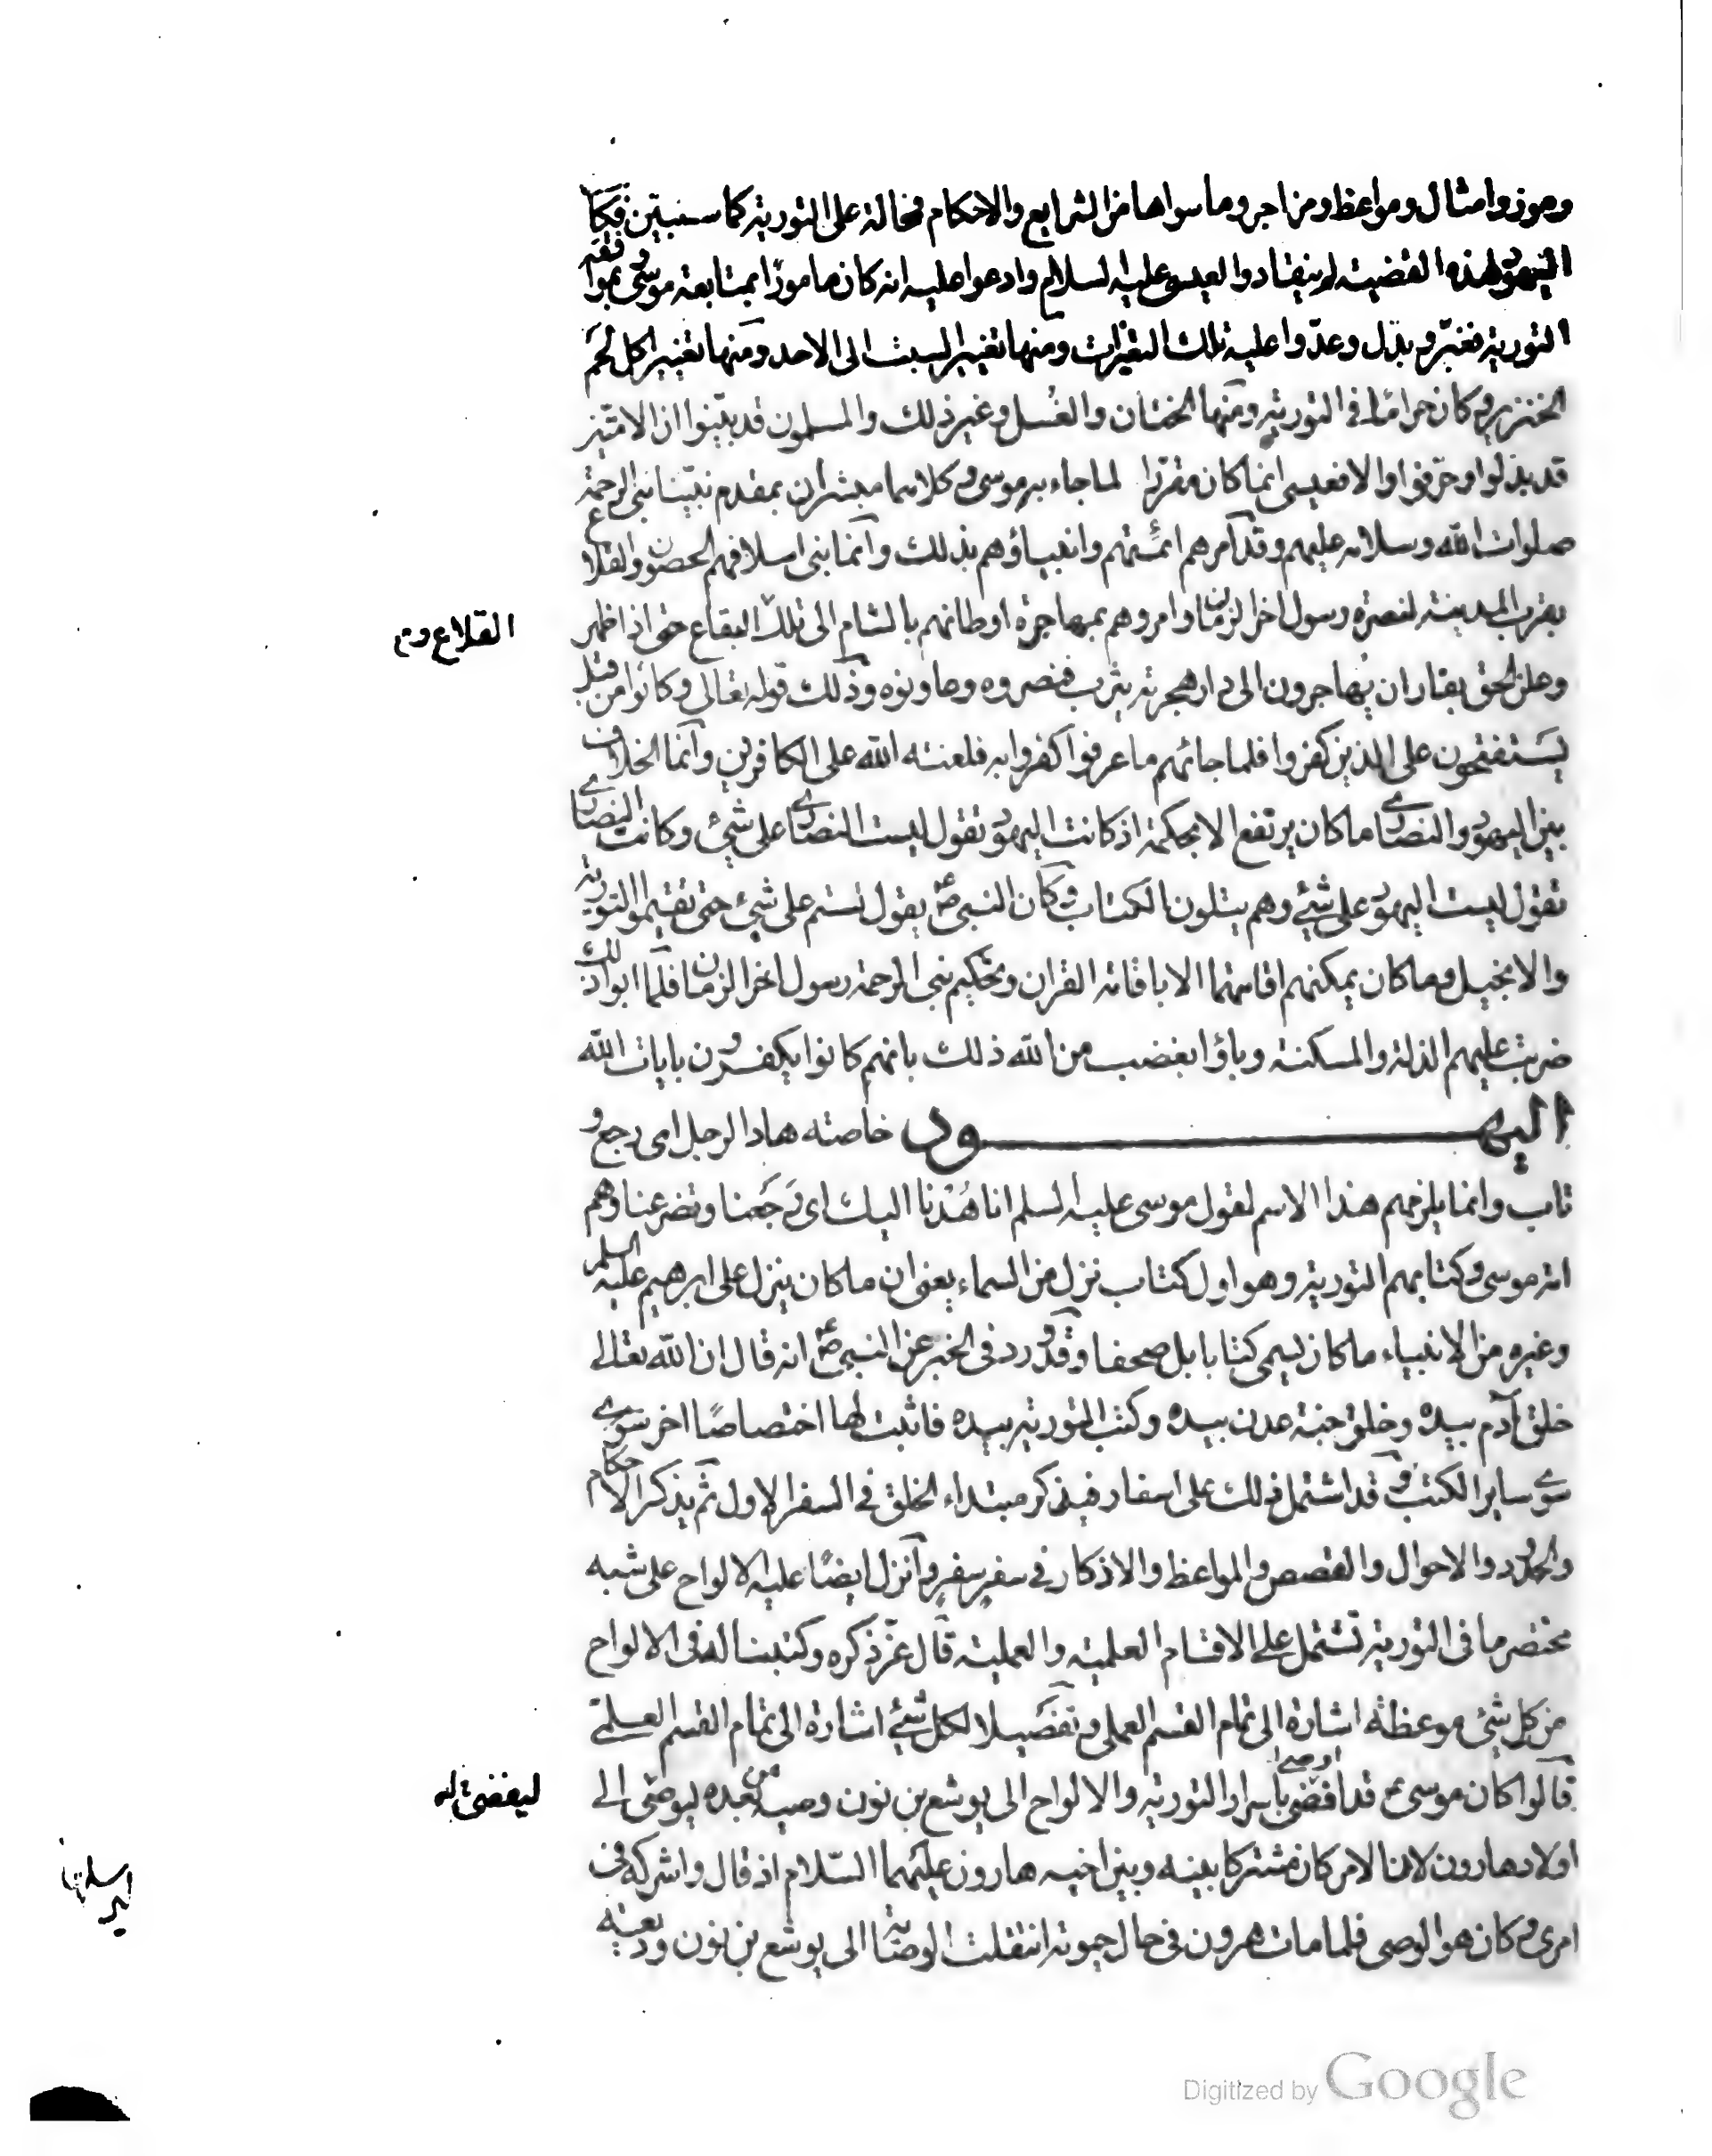 ورموز وامثال ومواعظ ومزاجر وما سواها من الشرايع والاحكام فمحالة على التورية كما سنبين فكا
اليهود لهذه القضية لم ينقادوا لعيسى عليه السلام وادعوا عليه انه كان مامورًا بمتابعة موسى وبموافقة
التورية فغيّر وبدّل وعدّوا عليه تلك التغيرات ومنها تغيير السبت الى الاحد ومنها تغيير اكل لحم
الخنزير وكان حرامًا في التورية ومنها الختان والغُسل وغير ذلك والمسلمون قد بيّنوا ان الامّتين
قد بدلوا وحرّفوا والا فعيسى انما كان مقرّرا لما جاء به موسى وكلاهما مبشران بمقدم نبيّنا نبي الرحمة
صلوات الله وسلامه عليهم وقد امرهم ائمّتهم وانبياؤهم بذلك وانما بنى اسلافهم الحصون والقلاع
بقرب المدينة لنصرة رسول اخر الزمان وامروهم بمهاجرة اوطانهم بالشام الى تلك البقاع حتى اذا ظهر
وعلن الحق بفاران يهاجرون الى دار هجرته يثرب فنصروه وعاونوه وذلك قوله تعالى وكانوا من قبل
يستفتحون على الذين كفروا فلما جائهم ما عرفوا كفروا به فلعنة الله على الكافرين وانما الخلاف
بين اليهود والنصارى ما كان يرتفع الا بحكمة اذ كانت اليهود تقول ليست النصارى على شيئ وكانت النصارى
تقول ليست اليهود على شيئ وهم يتلون الكتاب وكان النبي صع يقول لستم على شيئ حتى تقيموا التورية
والانجيل وما كان يمكنهم اقامتهما الا باقامة القران وتحكيم نبي الرحمة رسول اخر الزمان فلما ابوا ذلك
ضربت عليهم الذلة والمسكنة وباؤا بغضب من الله ذلك بانهم كانوا يكفرون بايات الله
اليهود خاصته هاد الرجل اى رجع و
تاب وانما يلزمهم هذا الاسم لقول موسى عليه السلم انا هُدْنا اليك اى رَجَعنا وتضرعنا وهم
امة موسى وكتابهم التورية وهو اول كتاب نزل من السماء يعنى ان ما كان ينزل على ابرهيم عليه السلم
وغيره من الانبياء ما كان يسمى كتابا بل صحفا وقد ورد فى الخبر عن النبي صع انه قال ان الله تعالى
خلق آدم بيده وخلق جنة عدن بيده وكتب التورية بيده فاثبت لها اختصاصًا اخر سوى
سوى ساير الكتب وقد اشتمل ذلك على اسفار فيذكر مبتداء الخلق في السفر الاول ثم يذكر الاحكام
والحدود والاحوال والقصص والمواعظ والاذكار في سفر سفر وانزل ايضًا عليه الالواح على شبه
مختصر ما فى التورية تشتمل على الاقسام العلمية والعملية قال عزّ ذكره وكتبنا له فى الالواح
من كل شيئ موعظة اشارة الى تمام القسم العملى وتفصيلا لكل شيئ اشارة الى تمام القسم العلمى
قالوا كان موسى ع قد افضى باسرار التورية والالواح الى يوشع بن نون وصيه من بعده ليوصى الى
اولاد هارون لان الامر كان مشتركا بينه وبين اخيه هارون عليهما السّلام اذ قال واشركه فى
امرى وكان هو الوصى فلما مات هرون فى حال حيوته انتقلت الوصاية الى يوشع بن نون وديعة
القلاع و
ليفضى
Digitized by Google